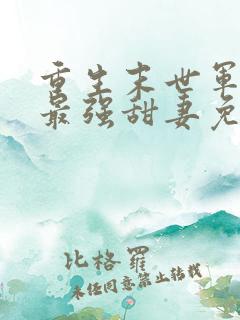 重生末世军
最强甜妻免
比格罗
未经同意禁止转载